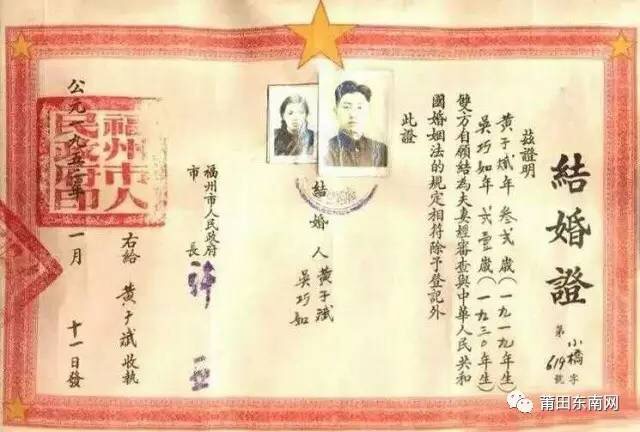 結婚證
第小橋字619號
茲證明
黃于斌年叁弍歲(一九一九年生)
吳巧如年弍壹歲(一九三〇年生)
雙方自願結為夫妻經審查與中華人民共和
國婚姻法的規定相符除予登記外
此證
結婚人
黃于斌
吳巧如
福州市人民政府
市長 許亞
右給 黃于斌收執
公元一九五一年一月十一日發
福州市人民政府印
莆田东南网